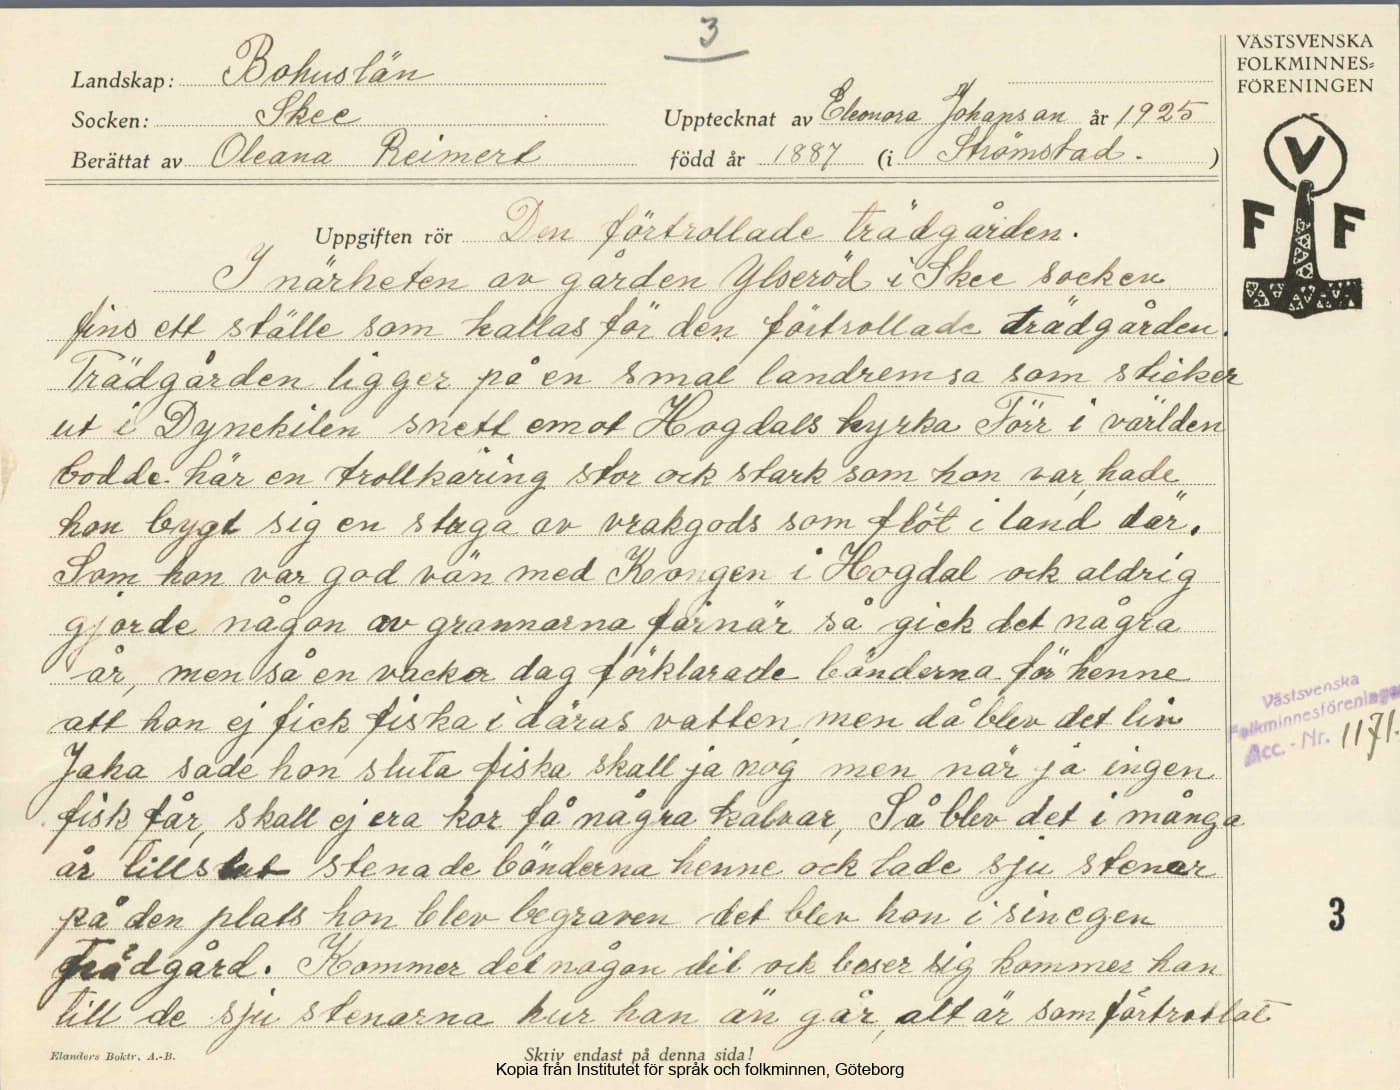 3
VÄSTSVENSKA
FOLKMINNES=
FÖRENINGEN
V
F F
Landskap: Bohuslän
Socken: Skee
Upptecknat av Eleonora Johansan år 1925
Berättat av Oleana Reimert
född år 1887 (i Strömstad. )
Uppgiften rör Den förtrollade trädgården.
I närheten av gården Ylseröd i Skee socken
fins ett ställe som kallas för den förtrollade trädgården.
Trädgården ligger på en smal landremsa som sticker
ut i Dynekilen snett emot Hogdals kyrka Förr i världen
bodde här en trollkäring stor ock stark som hon var, hade
hon bygt sig en stuga av vrakgods som flöt i land där.
Som hon var god vän med Kongen i Hogdal ock aldrig
gjorde någon av grannarna förnär så gick det några
år, men så en vacker dag förklarade bönderna för henne
att hon ej fick fiska i däras vatten, men då blev det liv
Jaha sade hon sluta fiska skall ja nog men när ja ingen
fisk får, skall ej era kor få några kalvar, Så blev det i många
år tillslut stenade bönderna henne ock lade sju stenar
på den plats hon blev begraven det blev hon i sin egen
trädgård. Kommer det någon dit ock beser sig kommer han
till de sju stenarna hur han än går, alt är som förtrollat
Västsvenska
Folkminnesföreningen
Acc.-Nr. 1171.
3
Elanders Boktr. A.-B.
Skriv endast på denna sida!
Kopia från Institutet för språk och folkminnen, Göteborg